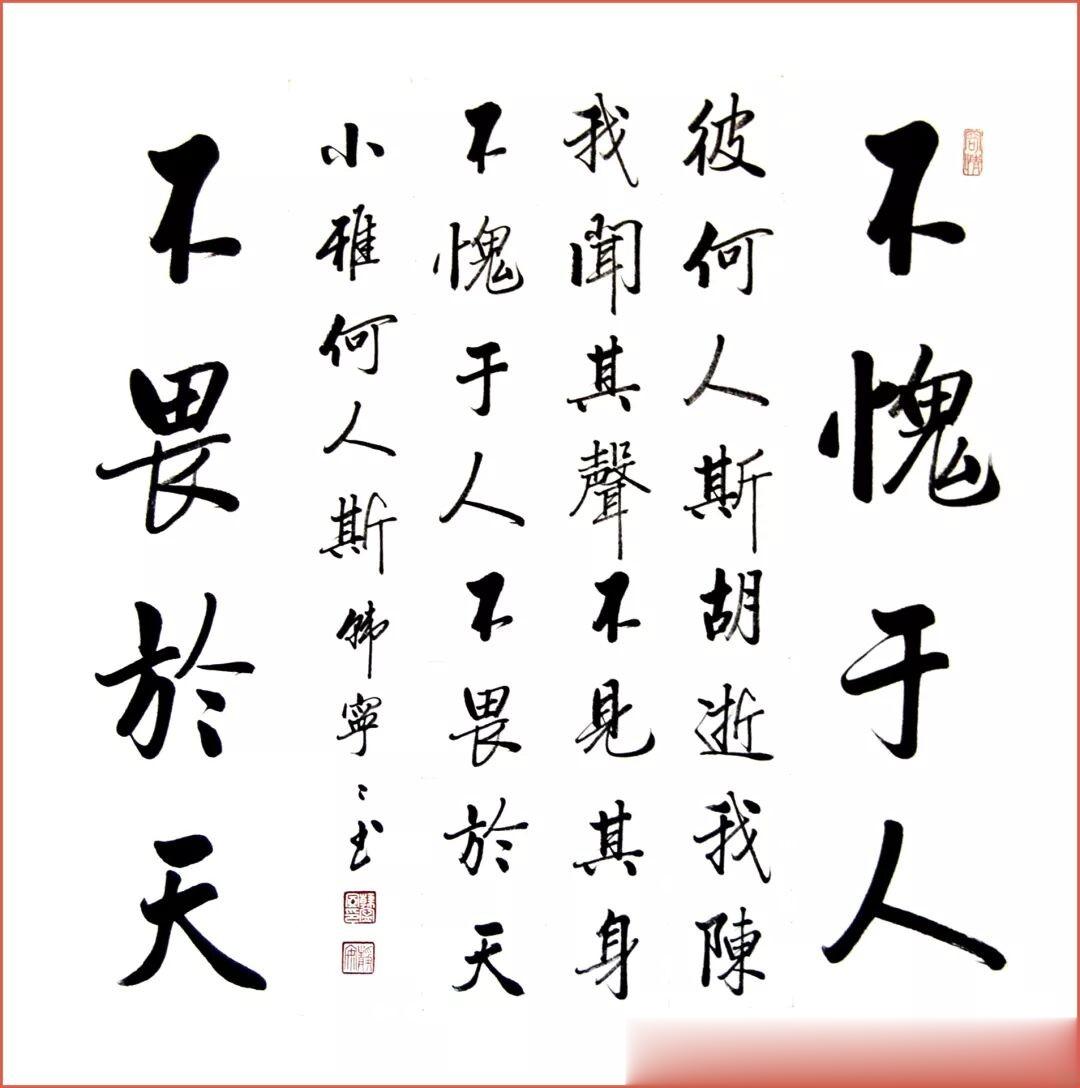 不愧于人
彼何人斯胡逝我陳
我聞其聲不見其身
不愧于人不畏於天
小雅何人斯韩寧寧书
不畏於天